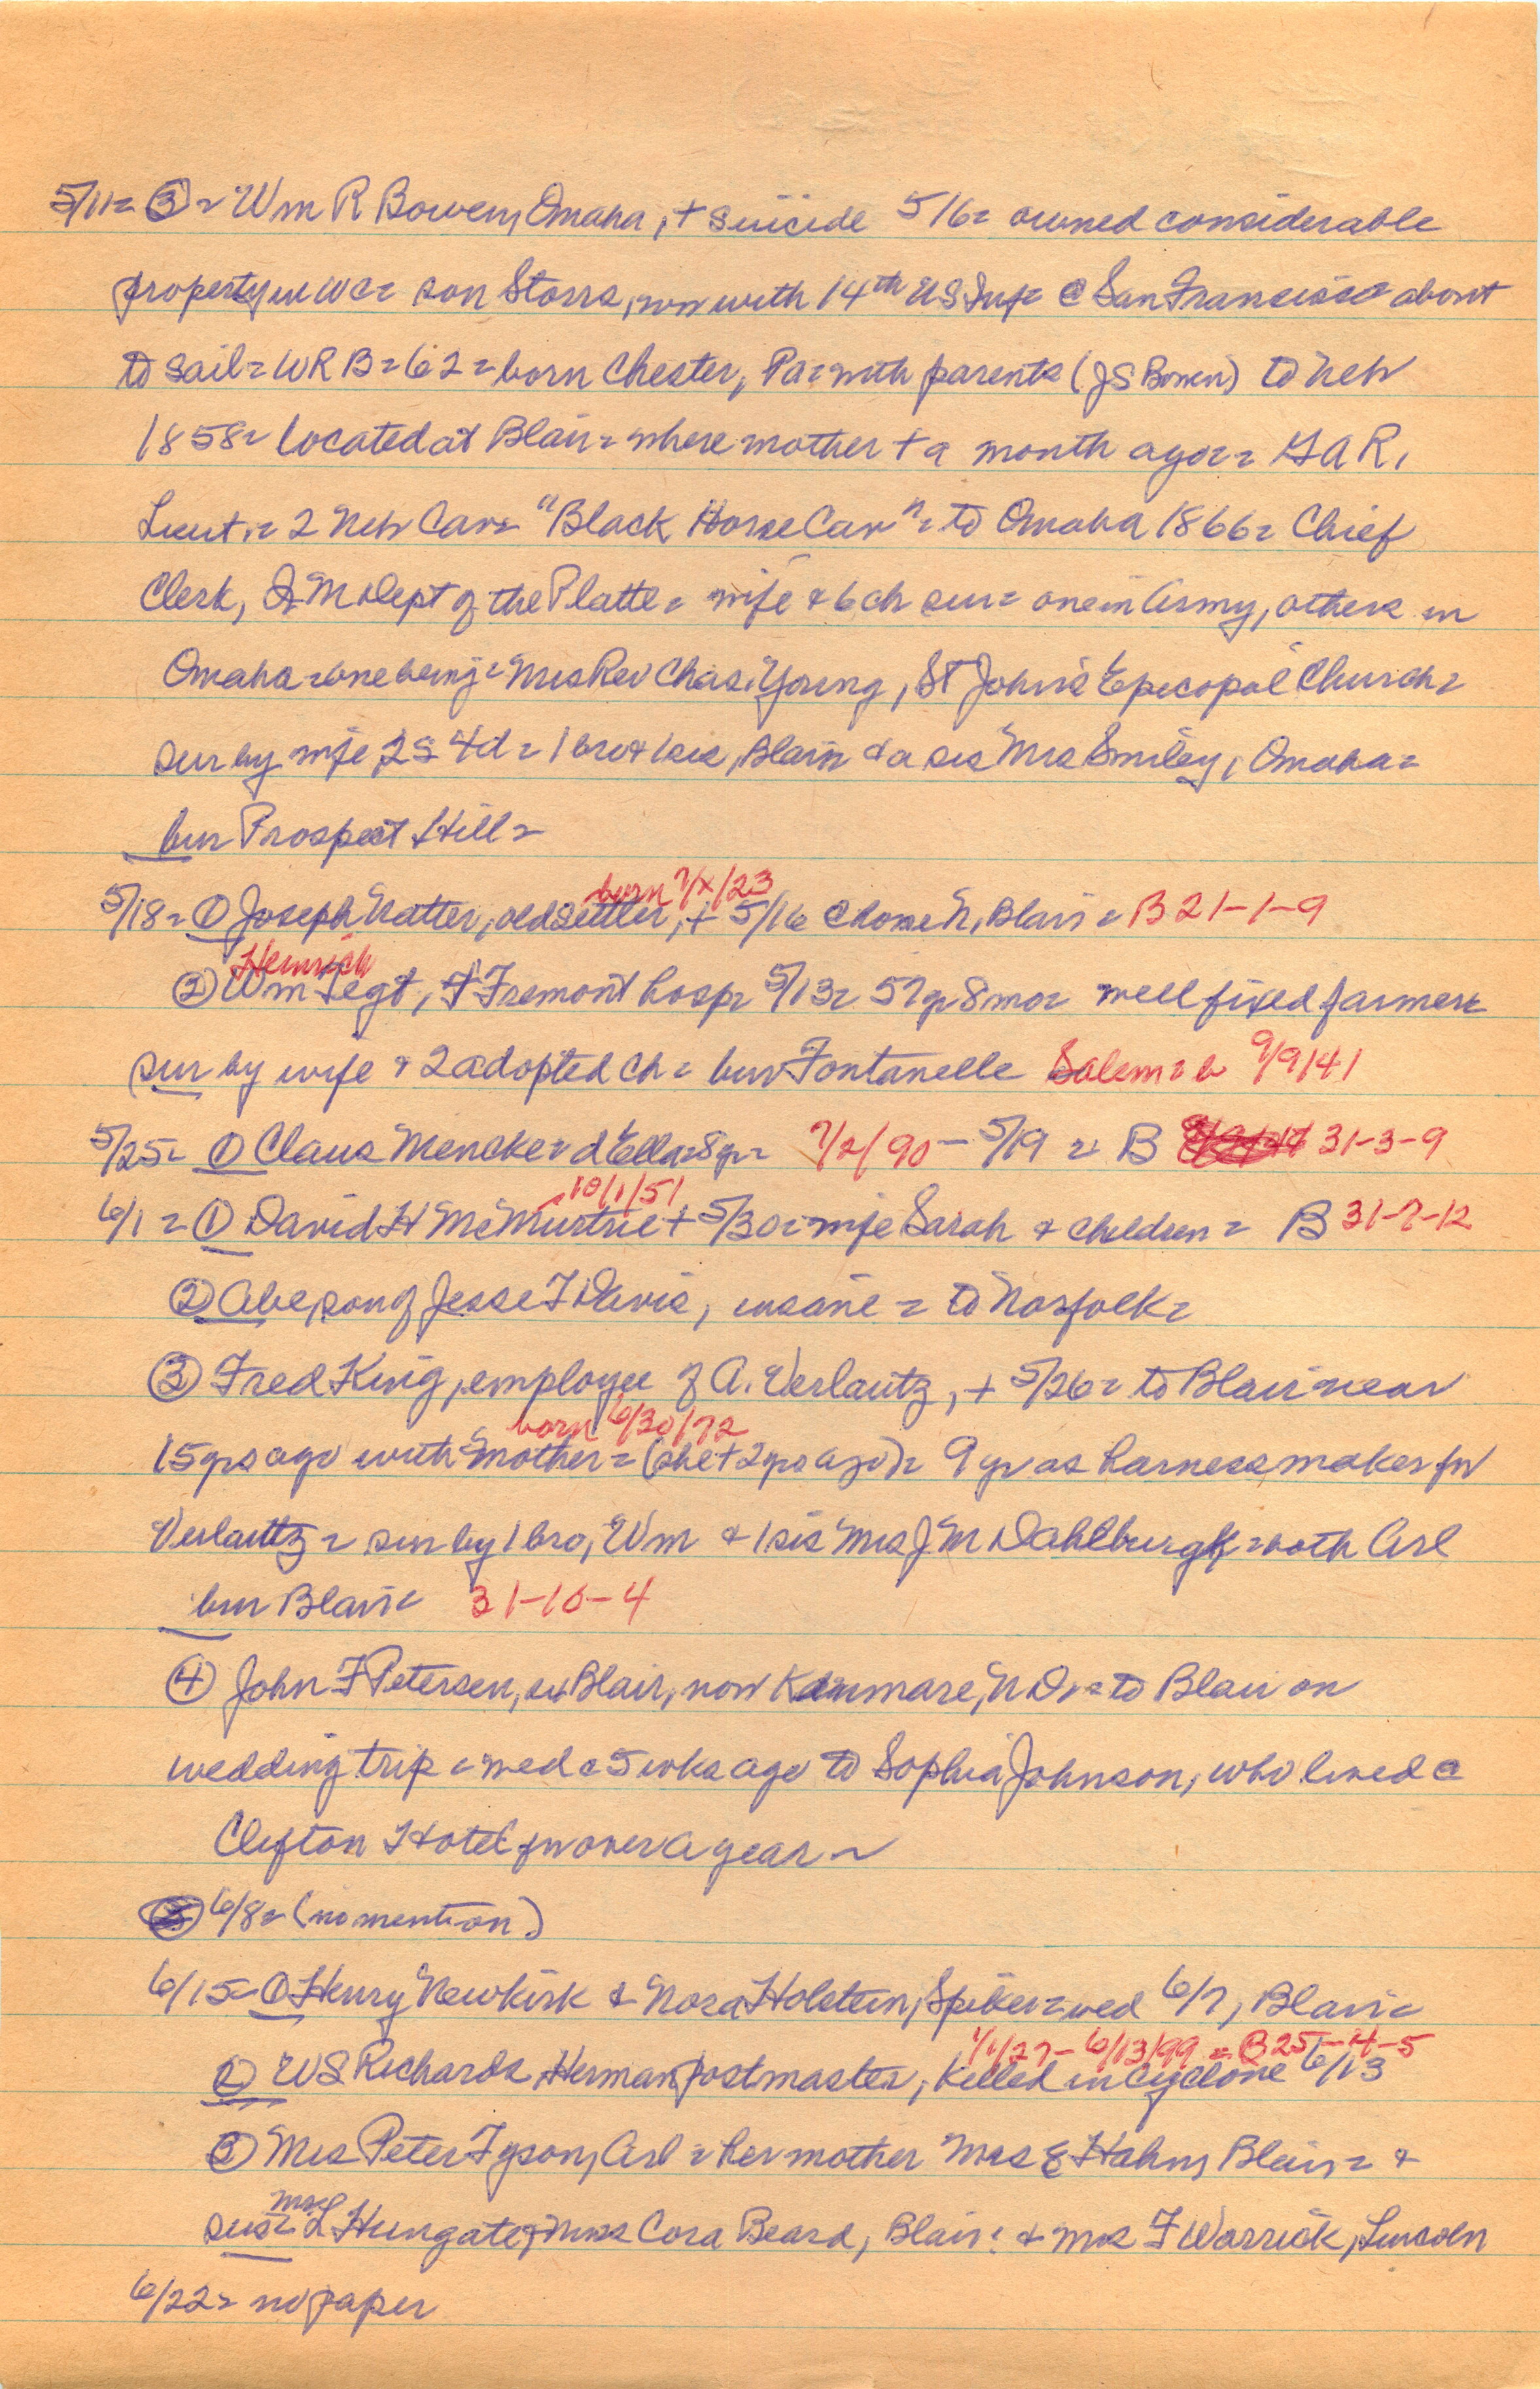 5/11= ③= Wm R Bowen, Omaha, + suicide 5/6= owned considerable
property in WC= son Storrs, now with 14th US Inf= @ San Francisco about
to sail= WRB= 62= born Chester, Pa= with parents (JS Bowen) to Neb
1858= located at Blair= where mother + a month ago== GAR,
Lieut.= 2 Neb Cav= "Black Horse Cav"= to Omaha 1866= Chief
Clerk, QM Dept of the Platte= wife & 6 ch sur= one in Army, others in
Omaha= one being= Mrs Rev Chas. Young, St John's Episcopal Church=
sur by wife, 2s 4d= 1 bro & 1 sis, Blair & a sis Mrs Smiley, Omaha=
bur Prospect Hill=
born 7/x/23
5/18= ① Joseph Natter, old settler, + 5/16 @ home N, Blair= B 21-1-9
Heinrich
② Wm Tegt, + Fremont hosp= 5/13= 57y 8mo= well fixed farmer=
sur by wife & 2 adopted ch= bur Fontanelle Salem= b 9/9/41
5/25= ① Claus Mencke= d Ella= 8y= 7/2/90 - 5/19 = B 31-3-9
10/1/51
6/1= ① David H McMurtrie + 5/30= wife Sarah & children= B 31-7-12
② Abe, son of Jesse T Davis, insane= to Norfolk=
③ Fred King, employee of A. Verlautz, + 5/26= to Blair near
born 6/30/72
15 yrs ago with mother= (she + 2 yrs ago)= 9 yr as harness maker for
Verlautz= sur by 1 bro, Wm & 1 sis Mrs J M Dahlburgh= both Arl
bur Blair= 31-10-4
④ John F Petersen, ex Blair, now Kenmare, N D.= to Blair on
wedding trip= wed c 5 wks ago to Sophia Johnson, who lived @
Clifton Hotel for over a year=
6/8= (no mention)
6/15= ① Henry Newkirk & Nora Holstein, Spiker= wed 6/7, Blair=
1/1/27- 6/13/99 = B 25-4-5
② WS Richards, Herman postmaster, killed in cyclone 6/13
③ Mrs Peter Tyson, Arl= her mother Mrs E Hahn, Blair= &
Mrs
sis= L Hungate, & Mrs Cora Beard, Blair: & Mrs F Warrick, Lincoln
6/22= no paper